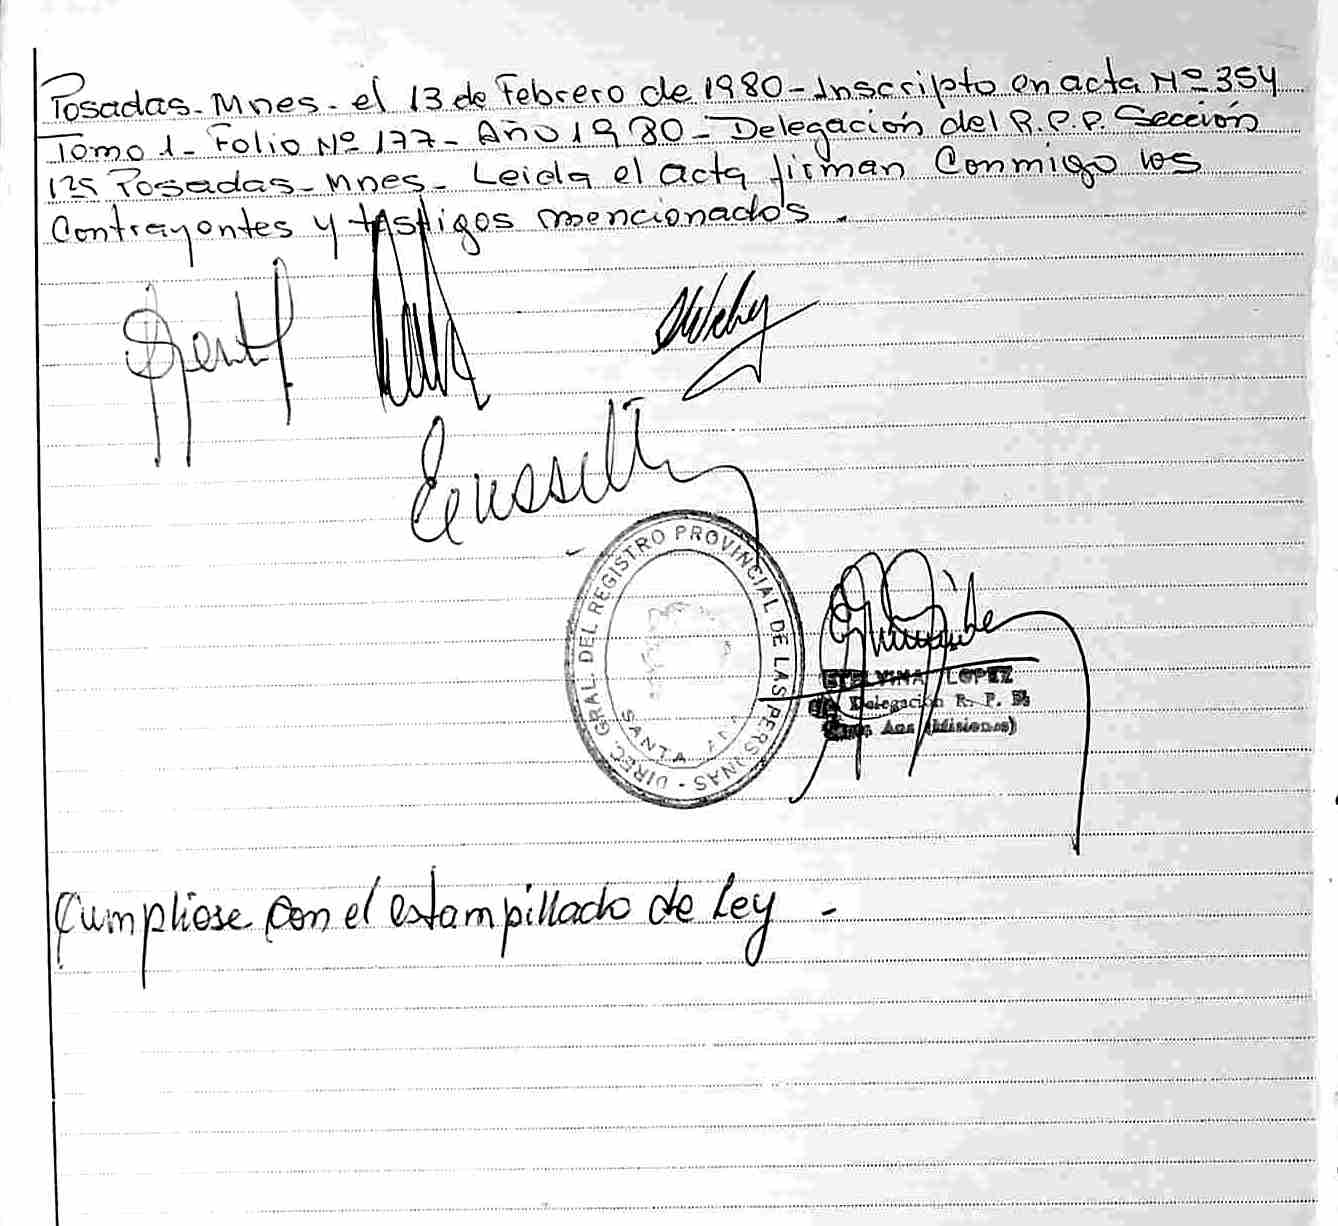 Posadas-Mnes- el 13 de Febrero de 1980- Inscripto en acta Nº 354
Tomo 1- Folio Nº 177- Año 1980- Delegación del R.P.P. Sección
1ra Posadas-Mnes- Leida el acta firman Conmigo los
Contrayentes y testigos mencionados.
DIREC. GRAL. DEL REGISTRO PROVINCIAL DE LAS PERSONAS -
SANTA ANA
ETELVINA LOPEZ
Delegación R. P. P.
Santa Ana (Misiones)
Cumpliose con el estampillado de Ley -